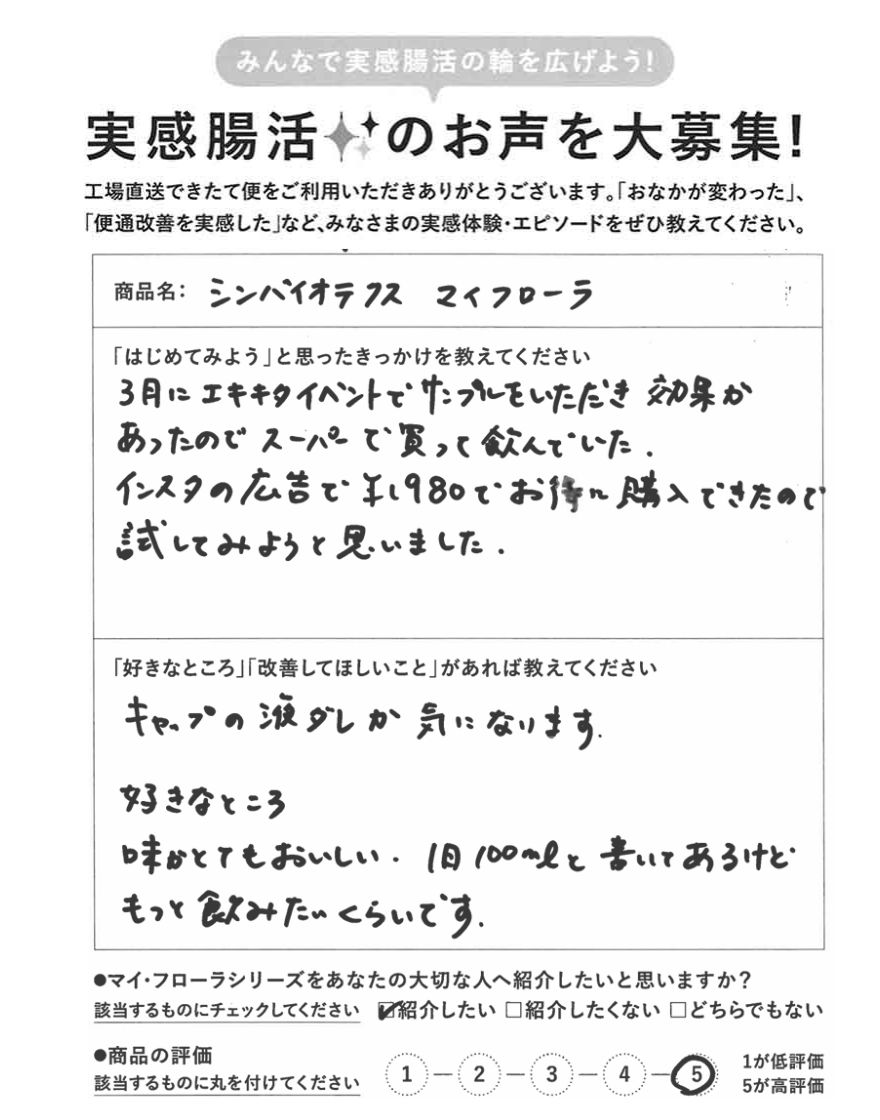 みんなで実感腸活の輪を広げよう!
実感腸活のお声を大募集!
工場直送できたて便をご利用いただきありがとうございます。「おなかが変わった」、
「便通改善を実感した」など、みなさまの実感体験・エピソードをぜひ教えてください。
商品名: シンバイオテクス マイフローラ
「はじめてみよう」と思ったきっかけを教えてください
3月にエキキタイベントでサンプルをいただき 効果が
あったのでスーパーで買って飲んでいた.
インスタの広告で¥1,980でお得に購入できたので
試してみようと思いました.
「好きなところ」「改善してほしいこと」があれば教えてください
キャップの液ダレが気になります.
好きなところ
味がとてもおいしい. 1日100mlと書いてあるけど
もっと飲みたいくらいです.
●マイ・フローラシリーズをあなたの大切な人へ紹介したいと思いますか?
該当するものにチェックしてください ☑紹介したい □紹介したくない □どちらでもない
●商品の評価
該当するものに丸を付けてください 1 — 2 — 3 — 4 — 5
1が低評価
5が高評価